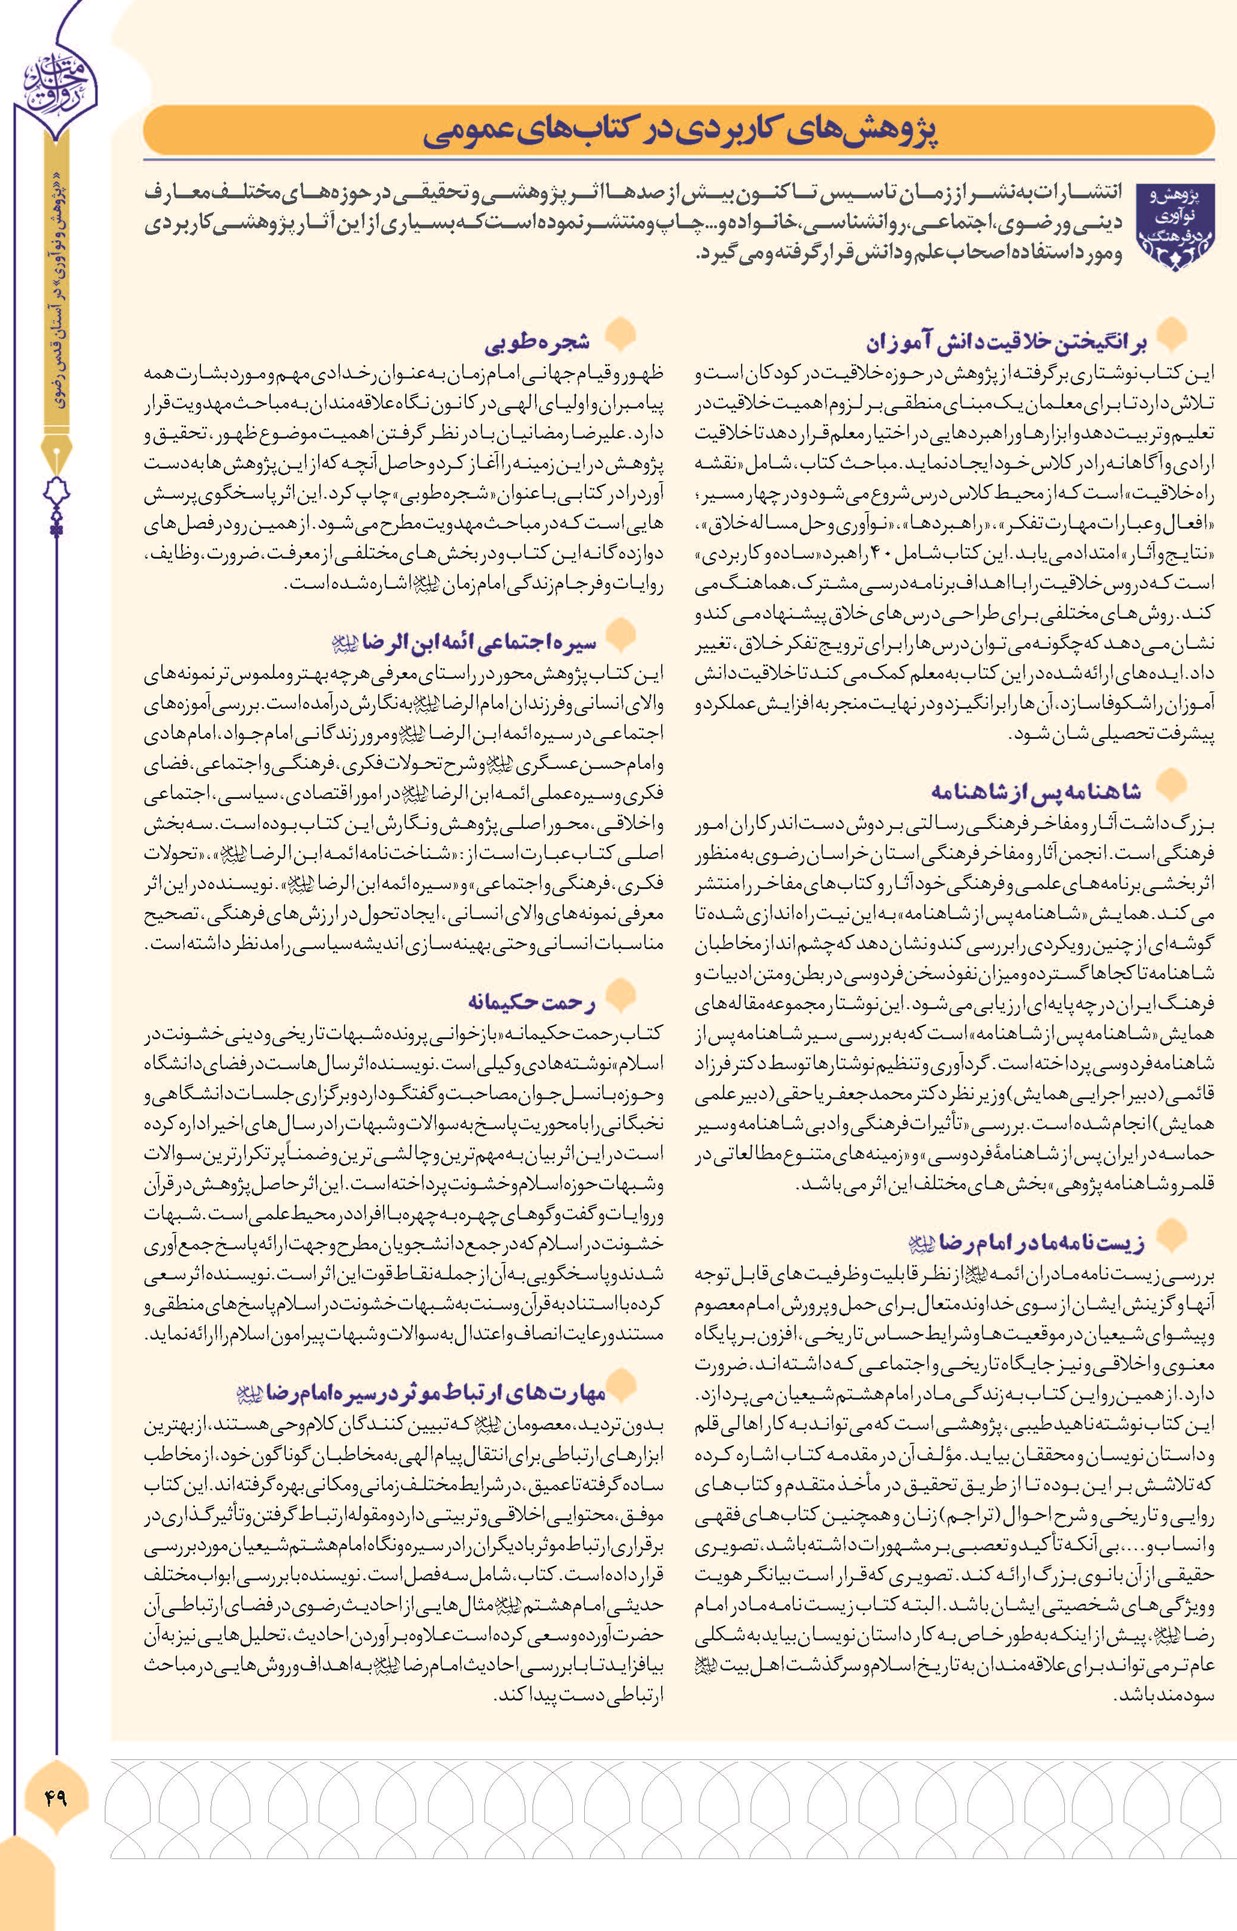 رواق خدمت
«پژوهش و نوآوری» در آستان قدس رضوی
پژوهش‌های کاربردی در کتاب‌های عمومی
پژوهش و
نوآوری
در فرهنگ
انتشارات به‌نشر از زمان تاسیس تاکنون بیش از صدها اثر پژوهشی و تحقیقی در حوزه‌های مختلف معارف
دینی و رضوی، اجتماعی، روانشناسی، خانواده و... چاپ و منتشر نموده است که بسیاری از این آثار پژوهشی کاربردی
و مورد استفاده اصحاب علم و دانش قرار گرفته و می گیرد.
برانگیختن خلاقیت دانش آموزان
این کتاب نوشتاری برگرفته از پژوهش در حوزه خلاقیت در کودکان است و
تلاش دارد تا برای معلمان یک مبنای منطقی بر لزوم اهمیت خلاقیت در
تعلیم و تربیت دهد و ابزارها و راهبردهایی در اختیار معلم قرار دهد تا خلاقیت
ارادی و آگاهانه را در کلاس خود ایجاد نماید. مباحث کتاب، شامل «نقشه
راه خلاقیت» است که از محیط کلاس درس شروع می شود و در چهار مسیر؛
«افعال و عبارات مهارت تفکر»، «راهبردها»، «نوآوری و حل مساله خلاق»،
«نتایج و آثار» امتداد می یابد. این کتاب شامل ۴۰ راهبرد «ساده و کاربردی»
است که دروس خلاقیت را با اهداف برنامه درسی مشترک، هماهنگ می
کند. روش های مختلفی برای طراحی درس های خلاق پیشنهاد می کند و
نشان می‌دهد که چگونه می توان درس ها را برای ترویج تفکر خلاق، تغییر
داد. ایده های ارائه شده در این کتاب به معلم کمک می کند تا خلاقیت دانش
آموزان را شکوفا سازد، آن ها را برانگیزد و در نهایت منجر به افزایش عملکرد و
پیشرفت تحصیلی شان شود.
شاهنامه پس از شاهنامه
بزرگ داشت آثار و مفاخر فرهنگی رسالتی بر دوش دست اندرکاران امور
فرهنگی است. انجمن آثار و مفاخر فرهنگی استان خراسان رضوی به منظور
اثربخشی برنامه های علمی و فرهنگی خود آثار و کتاب های مفاخر را منتشر
می کند. همایش «شاهنامه پس از شاهنامه» به این نیت راه اندازی شده تا
گوشه ای از چنین رویکردی را بررسی کند و نشان دهد که چشم انداز مخاطبان
شاهنامه تا کجاها گسترده و میزان نفوذ سخن فردوسی در بطن و متن ادبیات و
فرهنگ ایران در چه پایه ای ارزیابی می شود. این نوشتار مجموعه مقاله های
همایش «شاهنامه پس از شاهنامه» است که به بررسی سیر شاهنامه پس از
شاهنامه فردوسی پرداخته است. گردآوری و تنظیم نوشتارها توسط دکتر فرزاد
قائمی (دبیر اجرایی همایش) و زیر نظر دکتر محمدجعفر یاحقی (دبیر علمی
همایش) انجام شده است. بررسی «تأثیرات فرهنگی و ادبی شاهنامه و سیر
حماسه در ایران پس از شاهنامهٔ فردوسی» و «زمینه های متنوع مطالعاتی در
قلمرو شاهنامه پژوهی» بخش های مختلف این اثر می باشد.
زیست نامه مادر امام رضا علیه‌السلام
بررسی زیست نامه مادران ائمه علیهم‌السلام از نظر قابلیت و ظرفیت های قابل توجه
آنها و گزینش ایشان از سوی خداوند متعال برای حمل و پرورش امام معصوم
و پیشوای شیعیان در موقعیت ها و شرایط حساس تاریخی، افزون بر پایگاه
معنوی و اخلاقی و نیز جایگاه تاریخی و اجتماعی که داشته اند، ضرورت
دارد. از همین رو این کتاب به زندگی مادر امام هشتم شیعیان می پردازد.
این کتاب نوشته ناهید طیبی، پژوهشی است که می تواند به کار اهالی قلم
و داستان نویسان و محققان بیاید. مؤلف آن در مقدمه کتاب اشاره کرده
که تلاشش بر این بوده تا از طریق تحقیق در مأخذ متقدم و کتاب های
روایی و تاریخی و شرح احوال (تراجم) زنان و همچنین کتاب های فقهی
و انساب و...، بی آنکه تأکید و تعصبی بر مشهورات داشته باشد، تصویری
حقیقی از آن بانوی بزرگ ارائه کند. تصویری که قرار است بیانگر هویت
و ویژگی های شخصیتی ایشان باشد. البته کتاب زیست نامه مادر امام
رضا علیه‌السلام، پیش از اینکه به‌طور خاص به کار داستان نویسان بیاید به شکلی
عام تر می تواند برای علاقه مندان به تاریخ اسلام و سرگذشت اهل بیت علیهم‌السلام
سودمند باشد.
شجره طوبی
ظهور و قیام جهانی امام زمان به عنوان رخدادی مهم و مورد بشارت همه
پیامبران و اولیای الهی در کانون نگاه علاقه مندان به مباحث مهدویت قرار
دارد. علیرضا رمضانیان با در نظر گرفتن اهمیت موضوع ظهور، تحقیق و
پژوهش در این زمینه را آغاز کرد و حاصل آنچه که از این پژوهش ها به دست
آورد را در کتابی با عنوان «شجره طوبی» چاپ کرد. این اثر پاسخگوی پرسش
هایی است که در مباحث مهدویت مطرح می شود. از همین رو در فصل های
دوازده گانه این کتاب و در بخش های مختلفی از معرفت، ضرورت، وظایف،
روایات و فرجام زندگی امام زمان علیه‌السلام اشاره شده است.
سیره اجتماعی ائمه ابن الرضا علیه‌السلام
این کتاب پژوهش محور در راستای معرفی هرچه بهتر و ملموس تر نمونه های
والای انسانی و فرزندان امام الرضا علیه‌السلام به نگارش درآمده است. بررسی آموزه های
اجتماعی در سیره ائمه ابن الرضا علیه‌السلام و مرور زندگانی امام جواد، امام هادی
و امام حسن عسگری علیه‌السلام و شرح تحولات فکری، فرهنگی و اجتماعی، فضای
فکری و سیره عملی ائمه ابن الرضا علیه‌السلام در امور اقتصادی، سیاسی، اجتماعی
و اخلاقی، محور اصلی پژوهش و نگارش این کتاب بوده است. سه بخش
اصلی کتاب عبارت است از: «شناخت نامه ائمه ابن الرضا علیه‌السلام»، «تحولات
فکری، فرهنگی و اجتماعی» و «سیره ائمه ابن الرضا علیه‌السلام». نویسنده در این اثر
معرفی نمونه های والای انسانی، ایجاد تحول در ارزش های فرهنگی، تصحیح
مناسبات انسانی و حتی بهینه سازی اندیشه سیاسی را مدنظر داشته است.
رحمت حکیمانه
کتاب رحمت حکیمانه «بازخوانی پرونده شبهات تاریخی و دینی خشونت در
اسلام» نوشته هادی وکیلی است. نویسنده اثر سال هاست در فضای دانشگاه
و حوزه با نسل جوان مصاحبت و گفتگو دارد و برگزاری جلسات دانشگاهی و
نخبگانی را با محوریت پاسخ به سوالات و شبهات را در سال های اخیر اداره کرده
است در این اثر بیان به مهم ترین و چالشی ترین و ضمناً پر تکرار ترین سوالات
و شبهات حوزه اسلام و خشونت پرداخته است. این اثر حاصل پژوهش در قرآن
و روایات و گفت و گوهای چهره به چهره با افراد در محیط علمی است. شبهات
خشونت در اسلام که در جمع دانشجویان مطرح و جهت ارائه پاسخ جمع آوری
شدند و پاسخگویی به آن از جمله نقاط قوت این اثر است. نویسنده اثر سعی
کرده با استناد به قرآن و سنت به شبهات خشونت در اسلام پاسخ های منطقی و
مستند و رعایت انصاف و اعتدال به سوالات و شبهات پیرامون اسلام را ارائه نماید.
مهارت های ارتباط موثر در سیره امام رضا علیه‌السلام
بدون تردید، معصومان علیهم‌السلام که تبیین کنندگان کلام وحی هستند، از بهترین
ابزارهای ارتباطی برای انتقال پیام الهی به مخاطبان گوناگون خود، از مخاطب
ساده گرفته تا عمیق، در شرایط مختلف زمانی و مکانی بهره گرفته اند. این کتاب
موفق، محتوایی اخلاقی و تربیتی دارد و مقوله ارتباط گرفتن و تأثیرگذاری در
برقراری ارتباط موثر با دیگران را در سیره و نگاه امام هشتم شیعیان مورد بررسی
قرار داده است. کتاب، شامل سه فصل است. نویسنده با بررسی ابواب مختلف
حدیثی امام هشتم علیه‌السلام مثال هایی از احادیث رضوی در فضای ارتباطی آن
حضرت آورده و سعی کرده است علاوه بر آوردن احادیث، تحلیل هایی نیز به آن
بیافزاید تا با بررسی احادیث امام رضا علیه‌السلام به اهداف و روش هایی در مباحث
ارتباطی دست پیدا کند.
۴۹